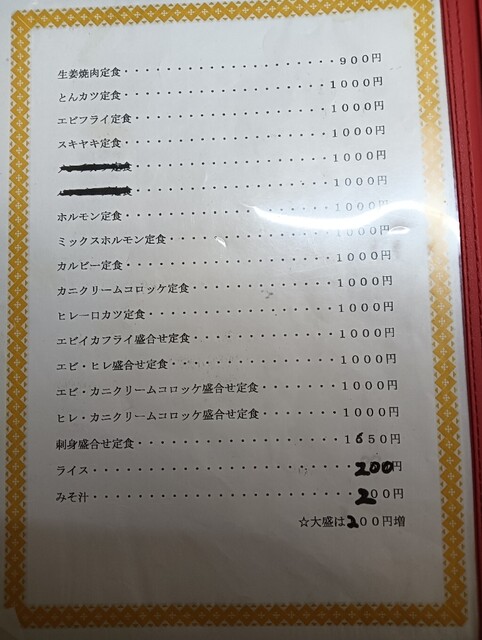 生姜焼肉定食・・・・・・・・・・・・・・・・・・・９００円
とんカツ定食・・・・・・・・・・・・・・・・・・１０００円
エビフライ定食・・・・・・・・・・・・・・・・・１０００円
スキヤキ定食・・・・・・・・・・・・・・・・・・１０００円
定食・・・・・・・・・・・・・・・・・・１０００円
定食・・・・・・・・・・・・・・・・・・１０００円
ホルモン定食・・・・・・・・・・・・・・・・・・１０００円
ミックスホルモン定食・・・・・・・・・・・・・・１０００円
カルビー定食・・・・・・・・・・・・・・・・・・１０００円
カニクリームコロッケ定食・・・・・・・・・・・・１０００円
ヒレ一口カツ定食・・・・・・・・・・・・・・・・１０００円
エビイカフライ盛合せ定食・・・・・・・・・・・・１０００円
エビ・ヒレ盛合せ定食・・・・・・・・・・・・・・１０００円
エビ・カニクリームコロッケ盛合せ定食・・・・・・１０００円
ヒレ・カニクリームコロッケ盛合せ定食・・・・・・１０００円
刺身盛合せ定食・・・・・・・・・・・・・・・・・１６５０円
ライス・・・・・・・・・・・・・・・・・・・・・２００円
みそ汁・・・・・・・・・・・・・・・・・・・・・２００円
☆大盛は２００円増